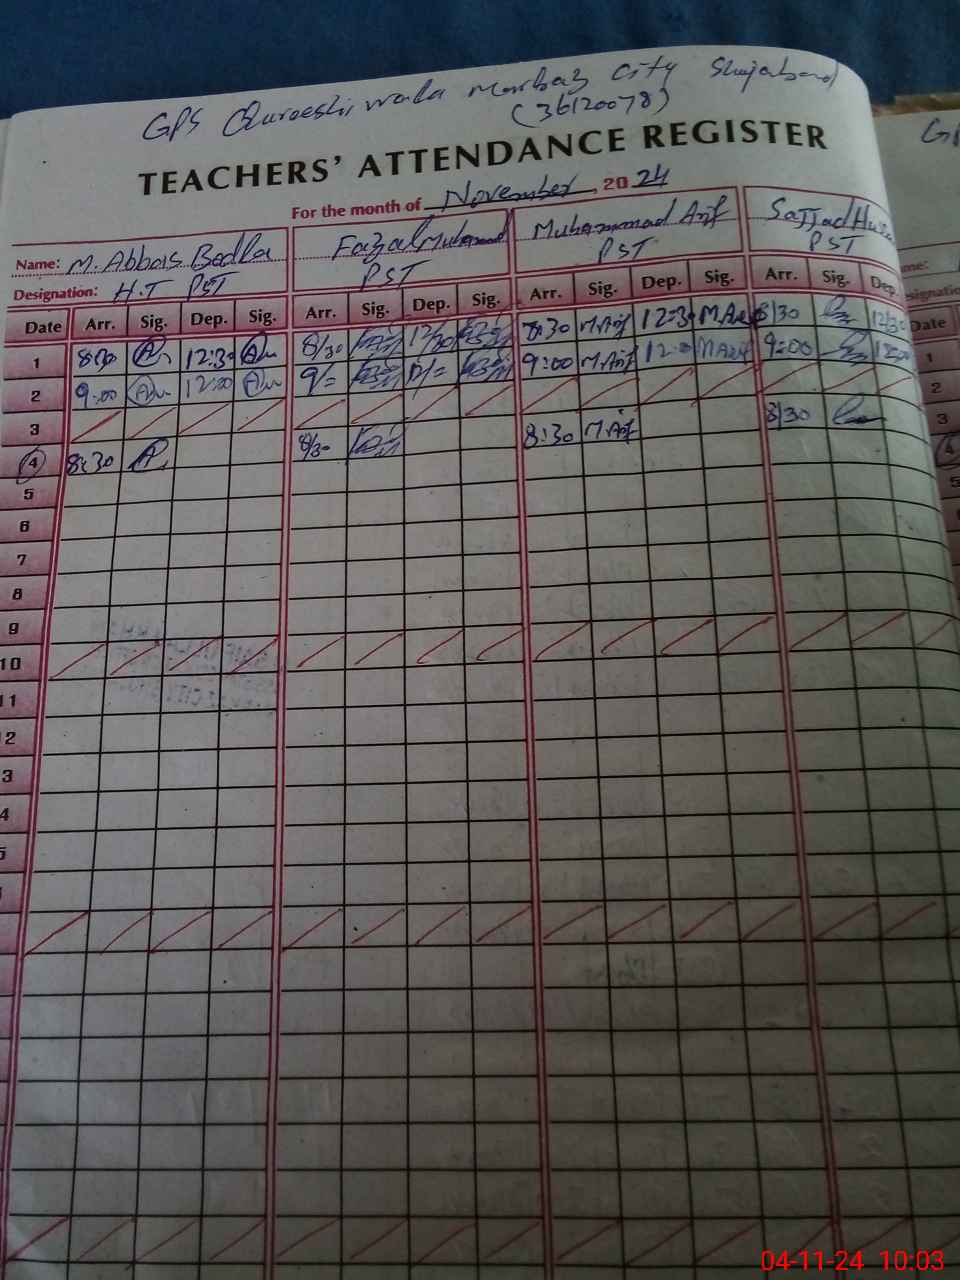 GPS Qureshi wala Markaz City Shujabad
(36120078)
TEACHERS' ATTENDANCE REGISTER
For the month of November, 2024
Name: M. Abbas Bodla Fazal Muhammad Muhammad Arif Sajjad
Designation: H.T PST PST PST PST
Date Arr. Sig. Dep. Sig. Arr. Sig. Dep. Sig. Arr. Sig. Dep. Sig. Arr. Sig. Dep.
1 8:30 12:30 8/30 12/30 8:30 M.Arif 12:30 M.Arif 8/30 12/30
2 9:00 12:00 9/= 12/= 9:00 M.Arif 12:00 M.Arif 9:00 12:00
3
4 8:30 8/30 8:30 M.Arif 8/30
5
6
7
8
9
10
11
12
13
14
15
Date
1
2
3
4
5
04-11-24 10:03